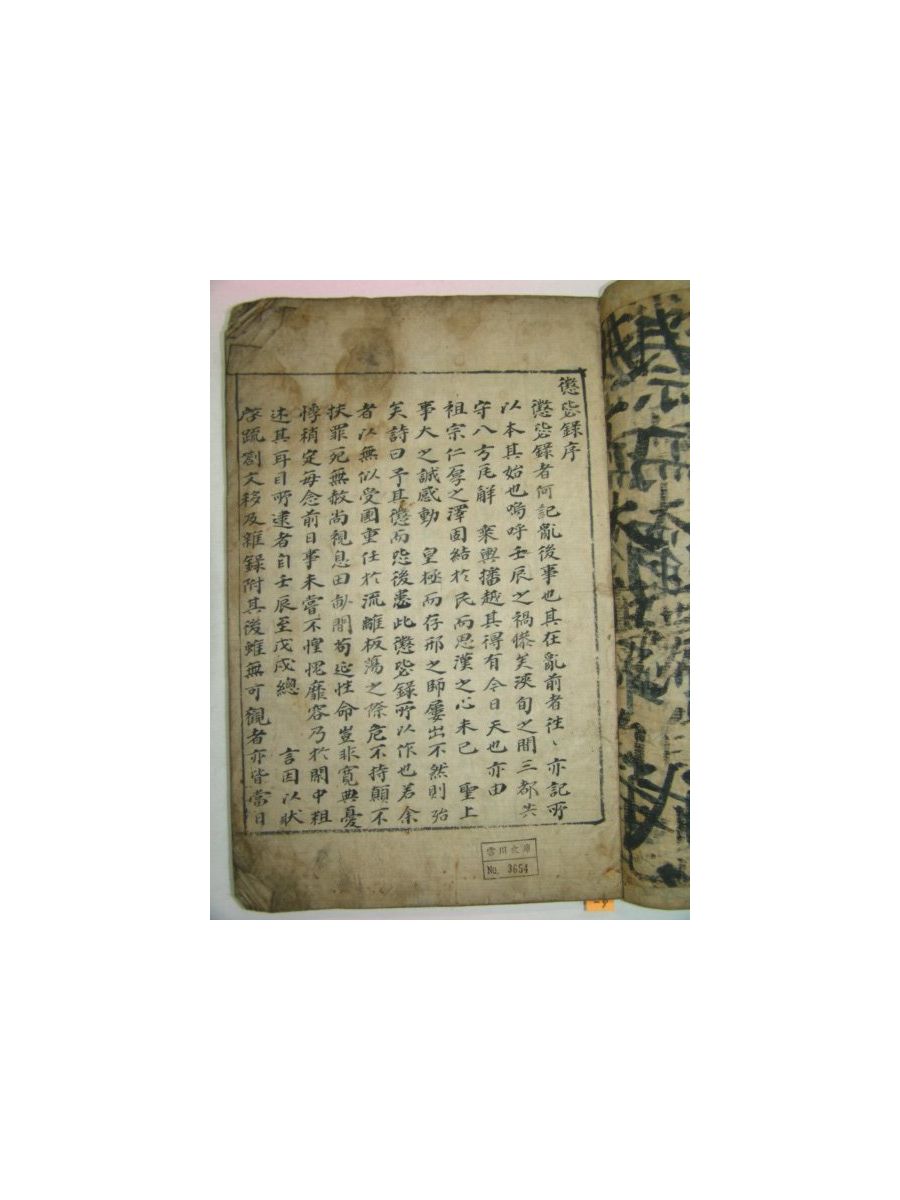 懲毖錄序
懲毖錄者何記亂後事也其在亂前者往〻亦記所
以本其始也嗚呼壬辰之禍慘矣浹旬之間三都失
守八方瓦解 乘輿播越其得有今日天也亦由
祖宗仁厚之澤固結於民而思漢之心未已 聖上
事大之誠感動 皇極而存邢之師屢出不然則殆
矣詩曰予其懲而毖後患此懲毖錄所以作也若余
者以無似受國重任於流離板蕩之際危不持顚不
扶罪死無赦尚視息田畝間苟延性命豈非寬典憂
悸稍定每念前日事未嘗不惶愧靡容乃於閑中粗
述其耳目所逮者自壬辰至戊戌總 言因以狀
啓疏劄文移及雜錄附其後雖無可觀者亦皆當日
雲田文庫
No. 3654